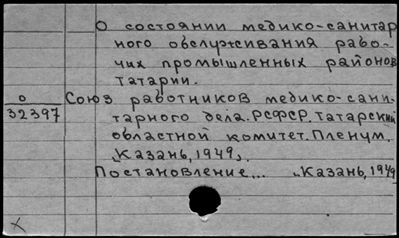 О состоянии медико-санитар
ного обслуживания рабо-
чих промышленных районов
Татарии.
О
32397
Союз работников медико-сани-
тарного дела. РСФСР. Татарский
областной комитет. Пленум.
„Казань, 1949„.
Постановление... „Казань, 1949